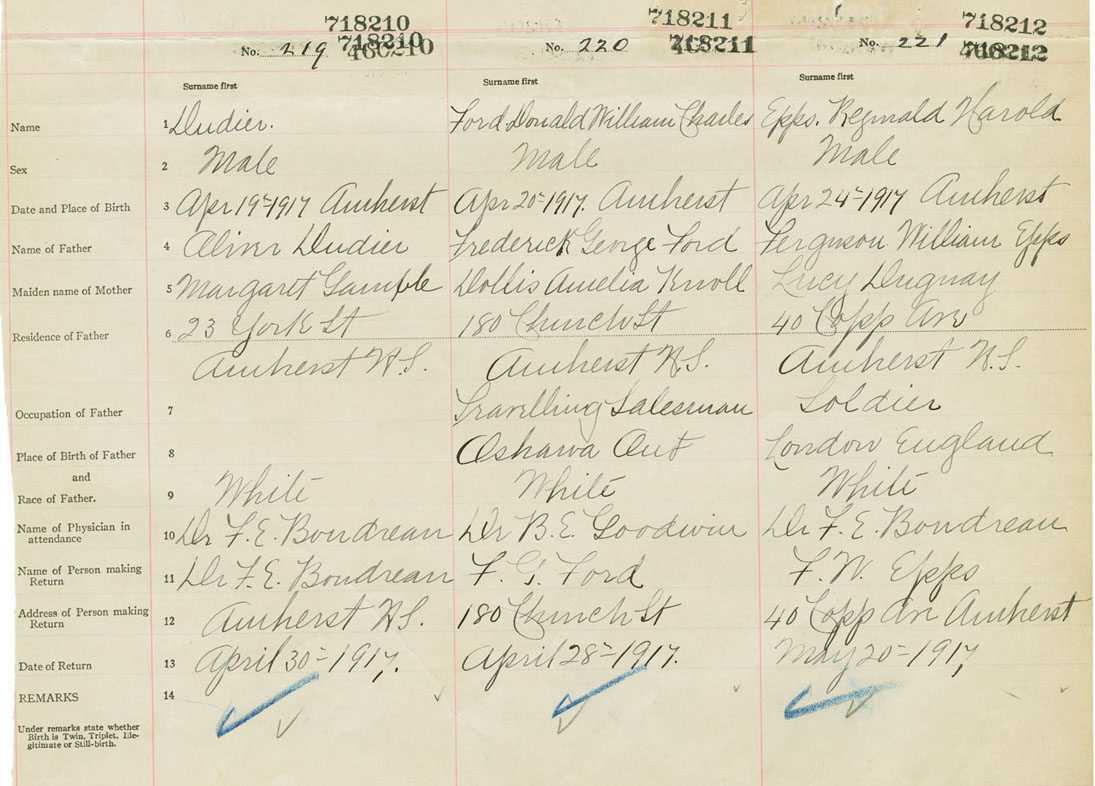 718210 718211 718212
No. 219 718210 No. 220 718211 No. 221 718212
Surname first Surname first Surname first
Name 1 Dudier. Ford Donald William Charles Epps. Reginald Harold
Sex 2 Male Male Male
Date and Place of Birth 3 Apr 19-1917 Amherst Apr 20-1917. Amherst Apr 24-1917 Amherst
Name of Father 4 Oliver Dudier Frederick George Ford Ferguson William Epps
Maiden name of Mother 5 Margaret Dollis Amelia Knoll Lucy Duguay
Residence of Father 6 23 York St 180 Church St 40 Copp Ave
Amherst N.S. Amherst N.S. Amherst N.S.
Occupation of Father 7 Travelling Salesman Soldier
Place of Birth of Father 8 Oshawa Ont London England
and
Race of Father. 9 White White White
Name of Physician in
attendance 10 Dr F. E. Boudreau Dr B. E. Goodwin Dr F. E. Boudreau
Name of Person making
Return 11 Dr F. E. Boudreau F. G. Ford F. W. Epps
Address of Person making
Return 12 Amherst N.S. 180 Church St 40 Copp Av Amherst
Date of Return 13 April 30-1917. April 28-1917. May 20-1917
REMARKS 14
Under remarks state whether
Birth is Twin, Triplet, Ille-
gitimate or Still-birth.